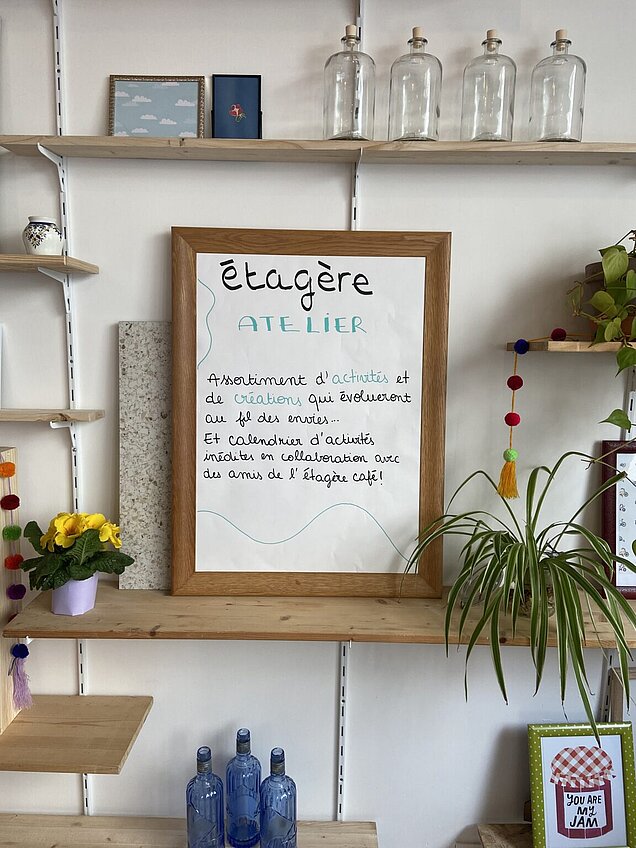 étagère
ATELIER
Assortiment d'activités et
de créations qui évolueront
au fil des envies...
Et calendrier d'activités
inédites en collaboration avec
des amis de l'étagère café!
YOU ARE
MY
JAM